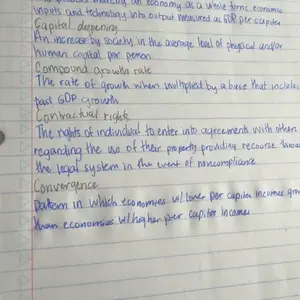 an economy as a whole turns economic
inputs and technology into output measured as GDP per capita
Capital deepening
An increase by society in the average level of physical and/or
human capital per person
Compound growth rate
The rate of growth when multiplied by a base that includes
past GDP growth
Contractual rights
The rights of individual to enter into agreements with others
regarding the use of their property providing recourse through
the legal system in the event of noncompliance
Convergence
pattern in which economies w/ lower per capita incomes grow
than economies w/ higher per capita incomes